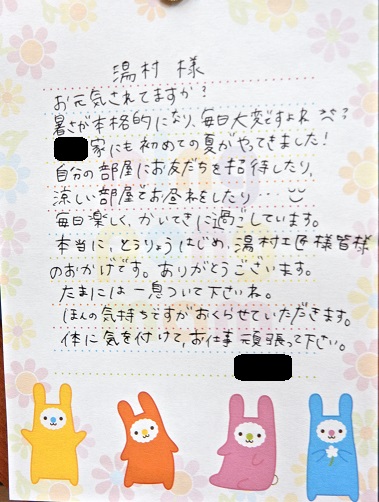 湯村 様
お元気されてますか?
暑さが本格的になり、毎日大変ですよね
家にも初めての夏がやってきました!
自分の部屋にお友だちを招待したり、
涼しい部屋でお昼ねをしたり
毎日楽しく、かいてきに過ごしています。
本当に、とうりょうはじめ、湯村工匠様皆様
のおかげです。ありがとうございます。
たまには一息ついて下さいね。
ほんの気持ちですがおくらせていただきます。
体に気を付けて、お仕事頑張って下さい。